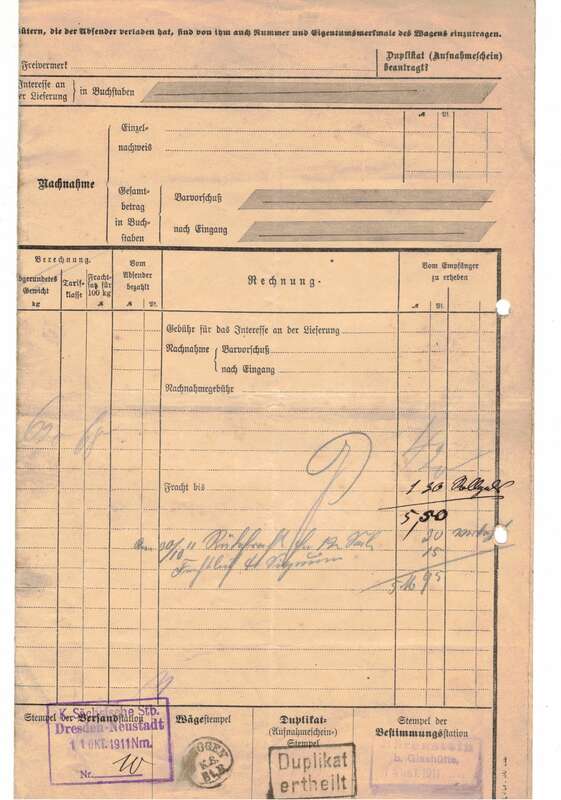 ütern, die der Absender verladen hat, sind von ihm auch Nummer und Eigentumsmerkmale des Wagens einzutragen.
Freivermerk
Duplikat (Aufnahmeschein)
beantragt?
Interesse an
der Lieferung } in Buchstaben
M Pf.
Nachnahme
Einzel-
nachweis
Gesamt-
betrag
in Buch-
staben
Barvorschuß
nach Eingang
Berechnung.
abgerundetes
Gewicht
kg
Tarif-
klasse
Fracht-
satz für
100 kg
M
Vom
Absender
bezahlt
M Pf.
Rechnung.
Vom Empfänger
zu erheben
M Pf.
Gebühr für das Interesse an der Lieferung
Nachnahme { Barvorschuß
nach Eingang
Nachnahmegebühr
Fracht bis
1 30
5,50
20
15
Stempel der Versandstation
K. Sächsische Stb.
Dresden-Neustadt
11 OKT. 1911 Nm.
Nr. 10
Wägestempel
WOGEN
K.S.
Duplikat-
(Aufnahmeschein-)
Stempel
Duplikat
ertheilt
Stempel der
Bestimmungsstation
b. Glashütte
1911